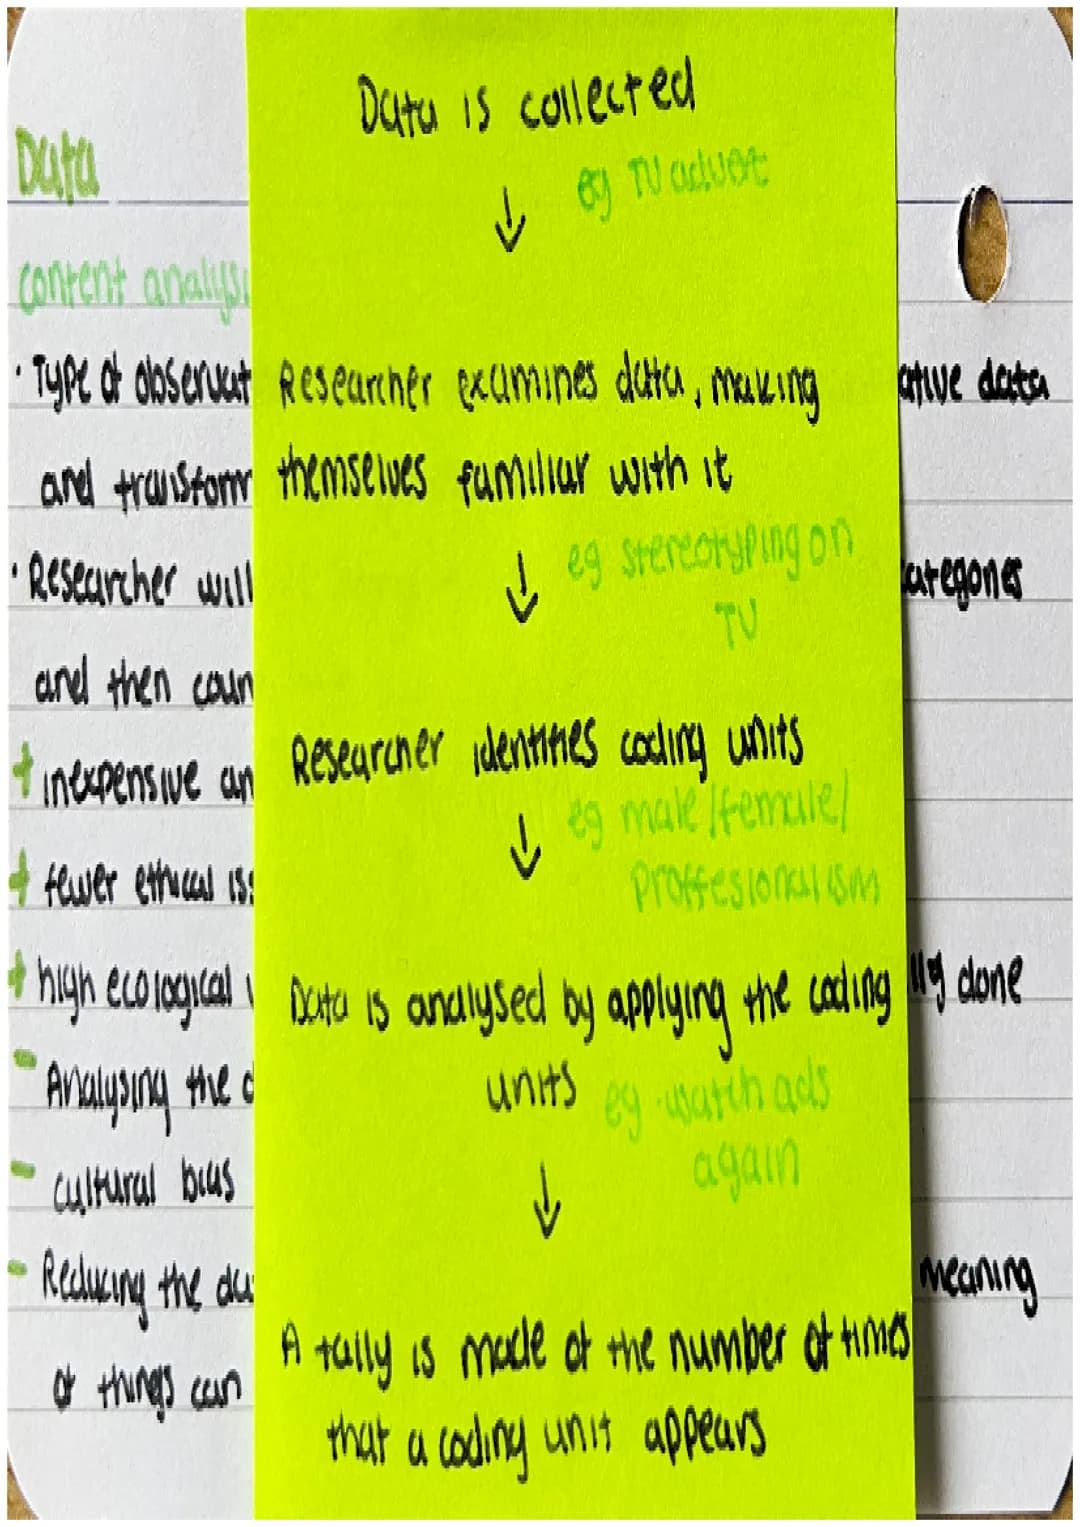 Data is collected
eg TV advert
↓
Researcher examines data, making
themselves familiar with it
eg stereotyping on
TV
↓
Researcher identifies coding units
eg male/female/
proffesionalism
↓
Data is analysed by applying the coding
units
eg watch ads
again
↓
A tally is made of the number of times
that a coding unit appears
Data
content analysi
· Type of observat
ative data
and transform
· Researcher will
categories
and then coun
+ inexpensive an
+ fewer ethical iss
+ high ecological v
lly done
- Analysing the d
- cultural bias
- Reducing the da
meaning
of things can